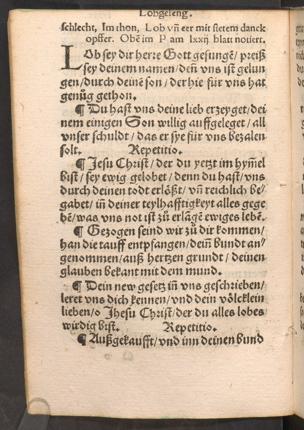 Lobgeseng.
schlecht, Im thon, Lob vñ eer mit stetem danck
opffer. Obē im Psalm lxxij blatt notiert.
LOb sey dir herre Gott gesungē/ preiß
sey deinem namen/ deñ vns ist gelun
gen/ durch deine son/ der hie für vns hat
genůg gethon.
¶ Du hast vns deine lieb erzeyget/ dei
nem einigen Son willig auffgeleget/ all
vnser schuldt/ das er sye für vns bezalen
solt. Repetitio.
¶ Jesu Christ/ der du yetzt im hym̃el
bist/ sey ewig gelobet/ denn du hast/ vns
durch deinen todt erlößt/ vñ reichlich be-
gabet/ in deiner teylhafftigkeyt alles gege
bē/ was vns not ist zů erlāgē ewiges lebē.
¶ Gezogen seind wir zů dir kommen/
han die tauff entpfangen/ deiñ bundt an
genommen/ auß hertzen grundt/ deinen
glauben bekant mit dem mund.
¶ Dein new gesetz iñ vns geschrieben/
leret vns dich kennen/ vnd dein völcklein
lieben/ o Jhesu Christ/ der du alles lobes
wirdig bist. Repetitio.
¶ Außgekaufft/ vnd inn deinen bund